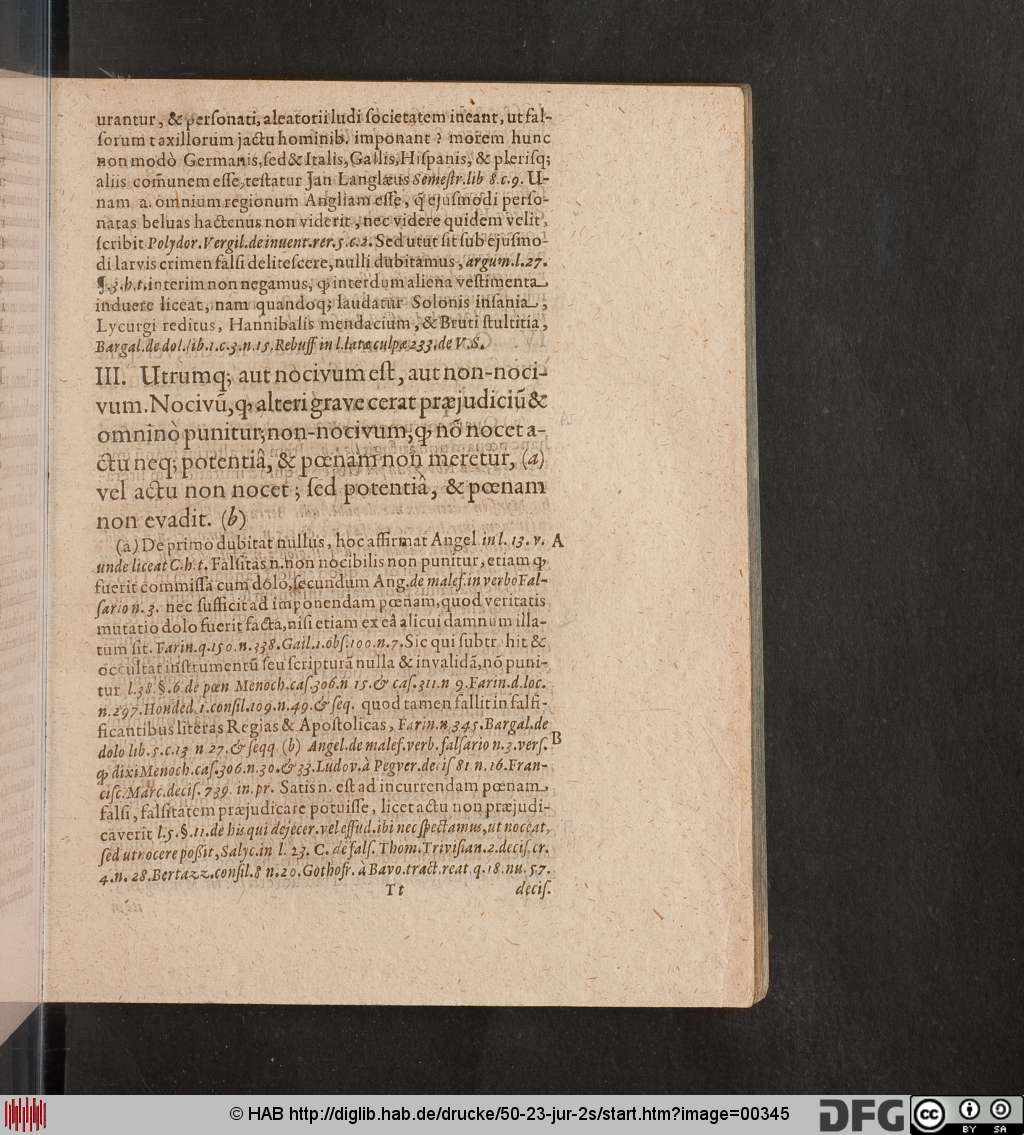 urantur, & personati, aleatorii ludi societatem ineant, ut fal-
sorum taxillorum jactu hominib. imponant? morem hunc
non modò Germanis, sed & Italis, Gallis, Hispanis, & plerisq;
aliis com̃unem esse, testatur Jan Langlæus Semestr. lib 8. c. 9. U-
nam a. omnium regionum Angliam esse, q̃ ejusmodi perso-
natas beluas hactenus non viderit, nec videre quidem velit,
scribit Polydor. Vergil. de inuent. rer. 5. c. 2. Sed utut sit sub ejusmo-
di larvis crimen falsi delitescere, nulli dubitamus, argum. l. 27.
¶. 3. h. t. interim non negamus, ꝙ interdum aliena vestimenta
induere liceat, nam quandoq; laudatur Solonis insania,
Lycurgi reditus, Hannibalis mendacium, & Bruti stultitia,
Bargal. de dol. lib. 1. c. 3. n. 15. Rebuff in l. latæ culpæ 233. de V. S.
III. Utrumq; aut nocivum est, aut non-noci-
vum. Nocivũ, ꝙ alteri grave cerat præjudiciũ &
omninò punitur; non-nocivum, ꝙ nõ nocet a-
ctu neq; potentiâ, & pœnam non meretur, (a)
vel actu non nocet; sed potentiâ, & pœnam
non evadit. (b)
(a) De primo dubitat nullus, hoc affirmat Angel in l. 13. v. A
unde liceat C. h. t. Falsitas n. non nocibilis non punitur, etiam ꝙ
fuerit commissa cum dolo, secundum Ang. de malef. in verbo Fal-
sario n. 3. nec sufficit ad imponendam pœnam, quod veritatis
mutatio dolo fuerit facta, nisi etiam ex eâ alicui damnum illa-
tum sit. Farin. q. 150. n. 338. Gail. 1. obs. 100. n. 7. Sic qui subtr hit &
occultat instrumentũ seu scripturã nulla & invalidã, nõ puni-
tur l. 38. §. 6 de pœn Menoch. cas. 306. n 15. & cas. 311. n 9. Farin. d. loc.
n. 297. Honded. 1. consil. 109. n. 49. & seq. quod tamen fallit in falsi-
ficantibus literas Regias & Apostolicas, Farin. n. 345. Bargal. de
dolo lib. 5. c. 13 n 27. & seqq (b) Angel. de malef. verb. falsario n. 3. vers. B
ꝙ dixi Menoch. cas. 306. n. 30. & 33. Ludov. à Pegver. decis 81 n. 16. Fran-
cisc. Marc. decis. 739. in. pr. Satis n. est ad incurrendam pœnam
falsi, falsitatem præjudicare potuisse, licet actu non præjudi-
caverit l. 5. §. 11. de his qui dejecer. vel effud. ibi nec spectamus, ut noceat,
sed ut nocere poßit, Salyc. in l. 23. C. de fals. Thom. Trivisian. 2. decis. cr.
4. n. 28. Bertazz. consil. 8 n. 20. Gothofr. à Bavo. tract. reat. q. 18. nu. 57.
Tt decis.
© HAB http://diglib.hab.de/drucke/50-23-jur-2s/start.htm?image=00345
DFG cc BY SA